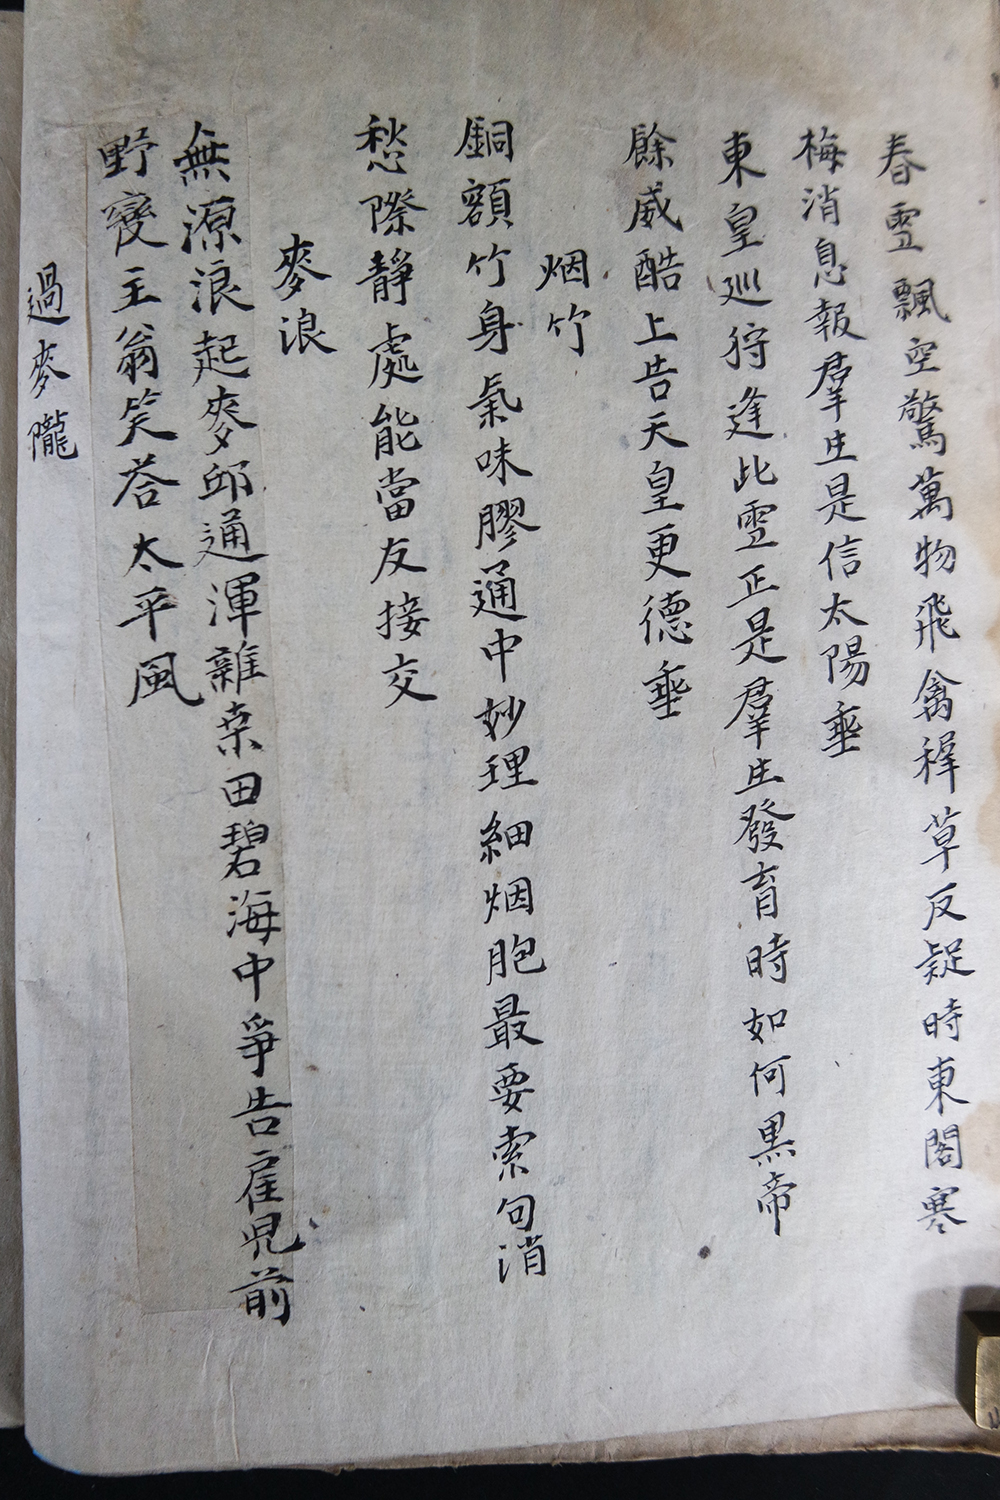 春雪飄空驚萬物飛禽稺草反疑時東閣寒
梅消息報羣生是信太陽垂
東皇巡狩逢此雪正是羣生發育時如何黑帝
餘威酷上告天皇更德垂
烟竹
銅額竹身氣味膠通中妙理細烟胞最要索句消
愁際靜處能當友接交
麥浪
無源浪起麥邱通渾雜桒田碧海中爭告雇児前
野叟主翁笑荅太平風
過麥隴